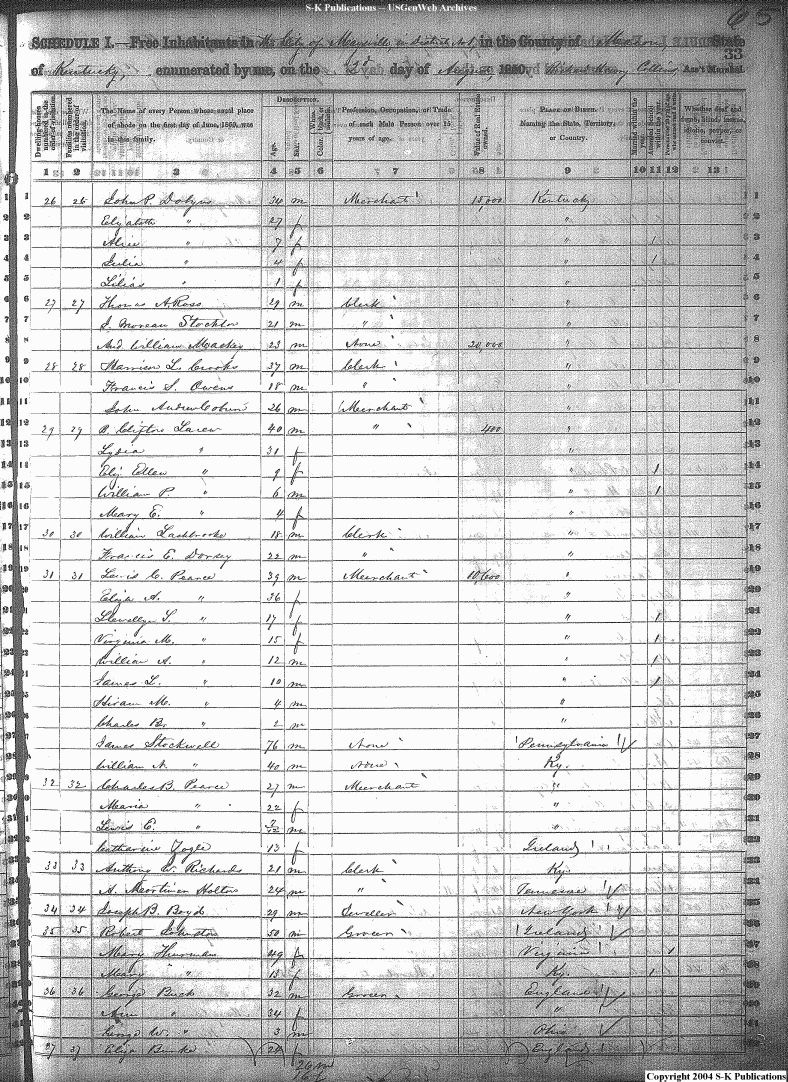 S-K Publications -- USGenWeb Archives
65
SCHEDULE I.—Free Inhabitants in the City of Maysville, in District No 1, in the County of Mason, State
33
of Kentucky, enumerated by me, on the 2d day of August 1850. Ass't Marshal.
DESCRIPTION.
Dwelling-houses numbered in the order of visitation.
Families numbered in the order of visitation.
The Name of every Person whose usual place of abode on the first day of June, 1850, was in this family.
Age.
Sex.
Profession, Occupation, or Trade of each Male Person over 15 years of age.
Value of Real Estate owned.
PLACE OF BIRTH. Naming the State, Territory, or Country.
Married within the year.
Whether deaf and dumb, blind, insane, idiotic, pauper, or convict.
1 2 3 4 5 6 7 8 9 10 11 12 13
1 26 26 John P. Dobyns 34 m Merchant 15,000 Kentucky 1
2 Elizabeth " 27 f " 2
3 Alice " 7 f " 1 3
4 Julia " 4 f " 1 4
5 Lilias " 1 f " 5
6 27 27 Thomas A. Ross 29 m Clerk " 6
7 J. Moreau Stockton 21 m " " 7
8 And. William Mackey 23 m None 20,000 " 8
9 28 28 Harrison L. Crooks 37 m Clerk " 9
10 Francis S. Owens 18 m " " 10
11 John Andrew Coburn 26 m Merchant " 11
12 29 29 B. Clifton Larew 40 m " 400 " 12
13 Lydia " 31 f " 13
14 Eliz Ellen " 9 f " 1 14
15 William P. " 6 m " 1 15
16 Mary E. " 4 f " 16
17 30 30 William Lashbrooke 18 m Clerk " 17
18 Francis E. Dorsey 22 m " " 18
19 31 31 Lewis C. Pearce 39 m Merchant 10,600 " 19
20 Eliza A. " 36 f " 20
21 Llewellyn S. " 17 f " 1 21
22 Virginia M. " 15 f " 1 22
23 William A. " 12 m " 1 23
24 James L. " 10 m " 1 24
25 Hiram M. " 4 m " 25
26 Charles Br. " 2 m " 26
27 James Stockwell 76 m None Pennsylvania 27
28 William N. " 40 m None Ky. 28
29 32 32 Charles B. Pearce 27 m Merchant " 29
30 Maria " 22 f " 30
31 Lewis E. " 7/12 m " 31
32 Catharine Fogle 13 f Ireland 32
33 33 33 Anthony W. Richards 21 m Clerk Ky. 33
34 A. Mortimer Holton 24 m " Tennessee 34
35 34 34 Joseph B. Boyd 29 m Jeweller New York 35
36 35 35 Robert Johnston 50 m Grocer Ireland 36
37 Mary Thurman 49 f Virginia 1 37
38 Mary " 15 f Ky. 1 38
39 36 36 George Buck 32 m Grocer England 39
40 Ann " 34 f " 40
41 George W. " 3 m Ohio 41
42 37 37 Eliza Burke f England 42
Copyright 2004 S-K Publications